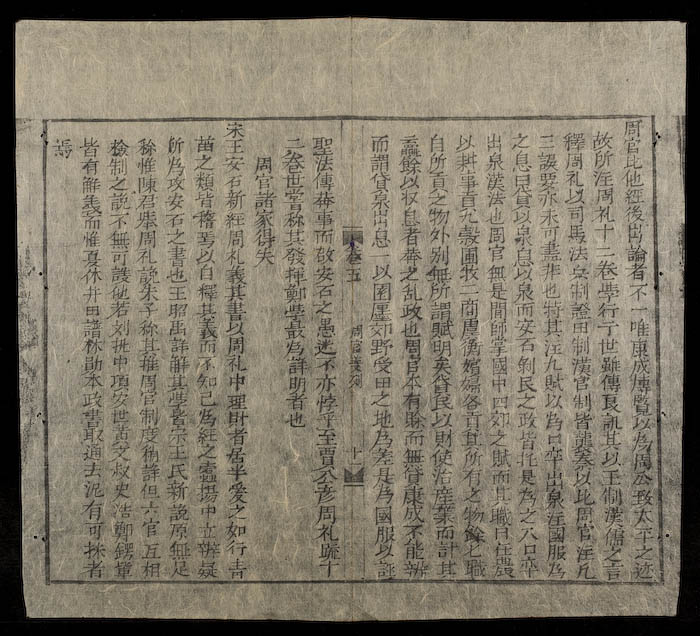 周官比他經後出論者不一唯康成博覽以為周公致太平之迹
故所注周礼十二卷學行亍世雖傳良訊其以王制漢儒之言
釋周礼以司馬法兵制證田制漢官制皆龍袞以比周官注凡
三誤要亦未可盡非也特其注九賦以為口卒出泉注國服為
之息曰貸以泉息以泉而安石剝民之政皆托是為之八口卒
出泉漢法也周官無是閭師掌國中四郊之賦而其職曰任農
以耕事貢九穀圃牧二商虞衡嬪婦各貢其所有之物餘七職
自所貢之物外別無所謂賦明矣貸民以財使治産業而計其
贏餘以收息者莽之乱政也周官本有賒而無貸康成不能辨
而謂貸泉出息一以園廛郊野受田之地為差是為國服以誣
聖法傳莽事而啟安石之愚迷不亦悖乎至賈公彥周礼疏十
二卷世嘗称其發揮鄭學最為詳明者也
周官諸家得失
宋王安石新經周礼義其書以周礼中理財者居半愛之如行青
苗之類皆稽焉以自釋其義而不知已為經之蠹揚中立辨疑
所為攻安石之書也王昭禹詳解其學皆宗王氏新說原無足
称惟陳君舉周礼說朱子称其雅周官制度稍詳但六官互相
檢制之說不無可議他若刘执中項安世黄文叔史浩鄭鍔輩
皆有解義而惟夏休井田譜林勋本政書取通去泥有可採者
焉
卷五
周官義例
十一